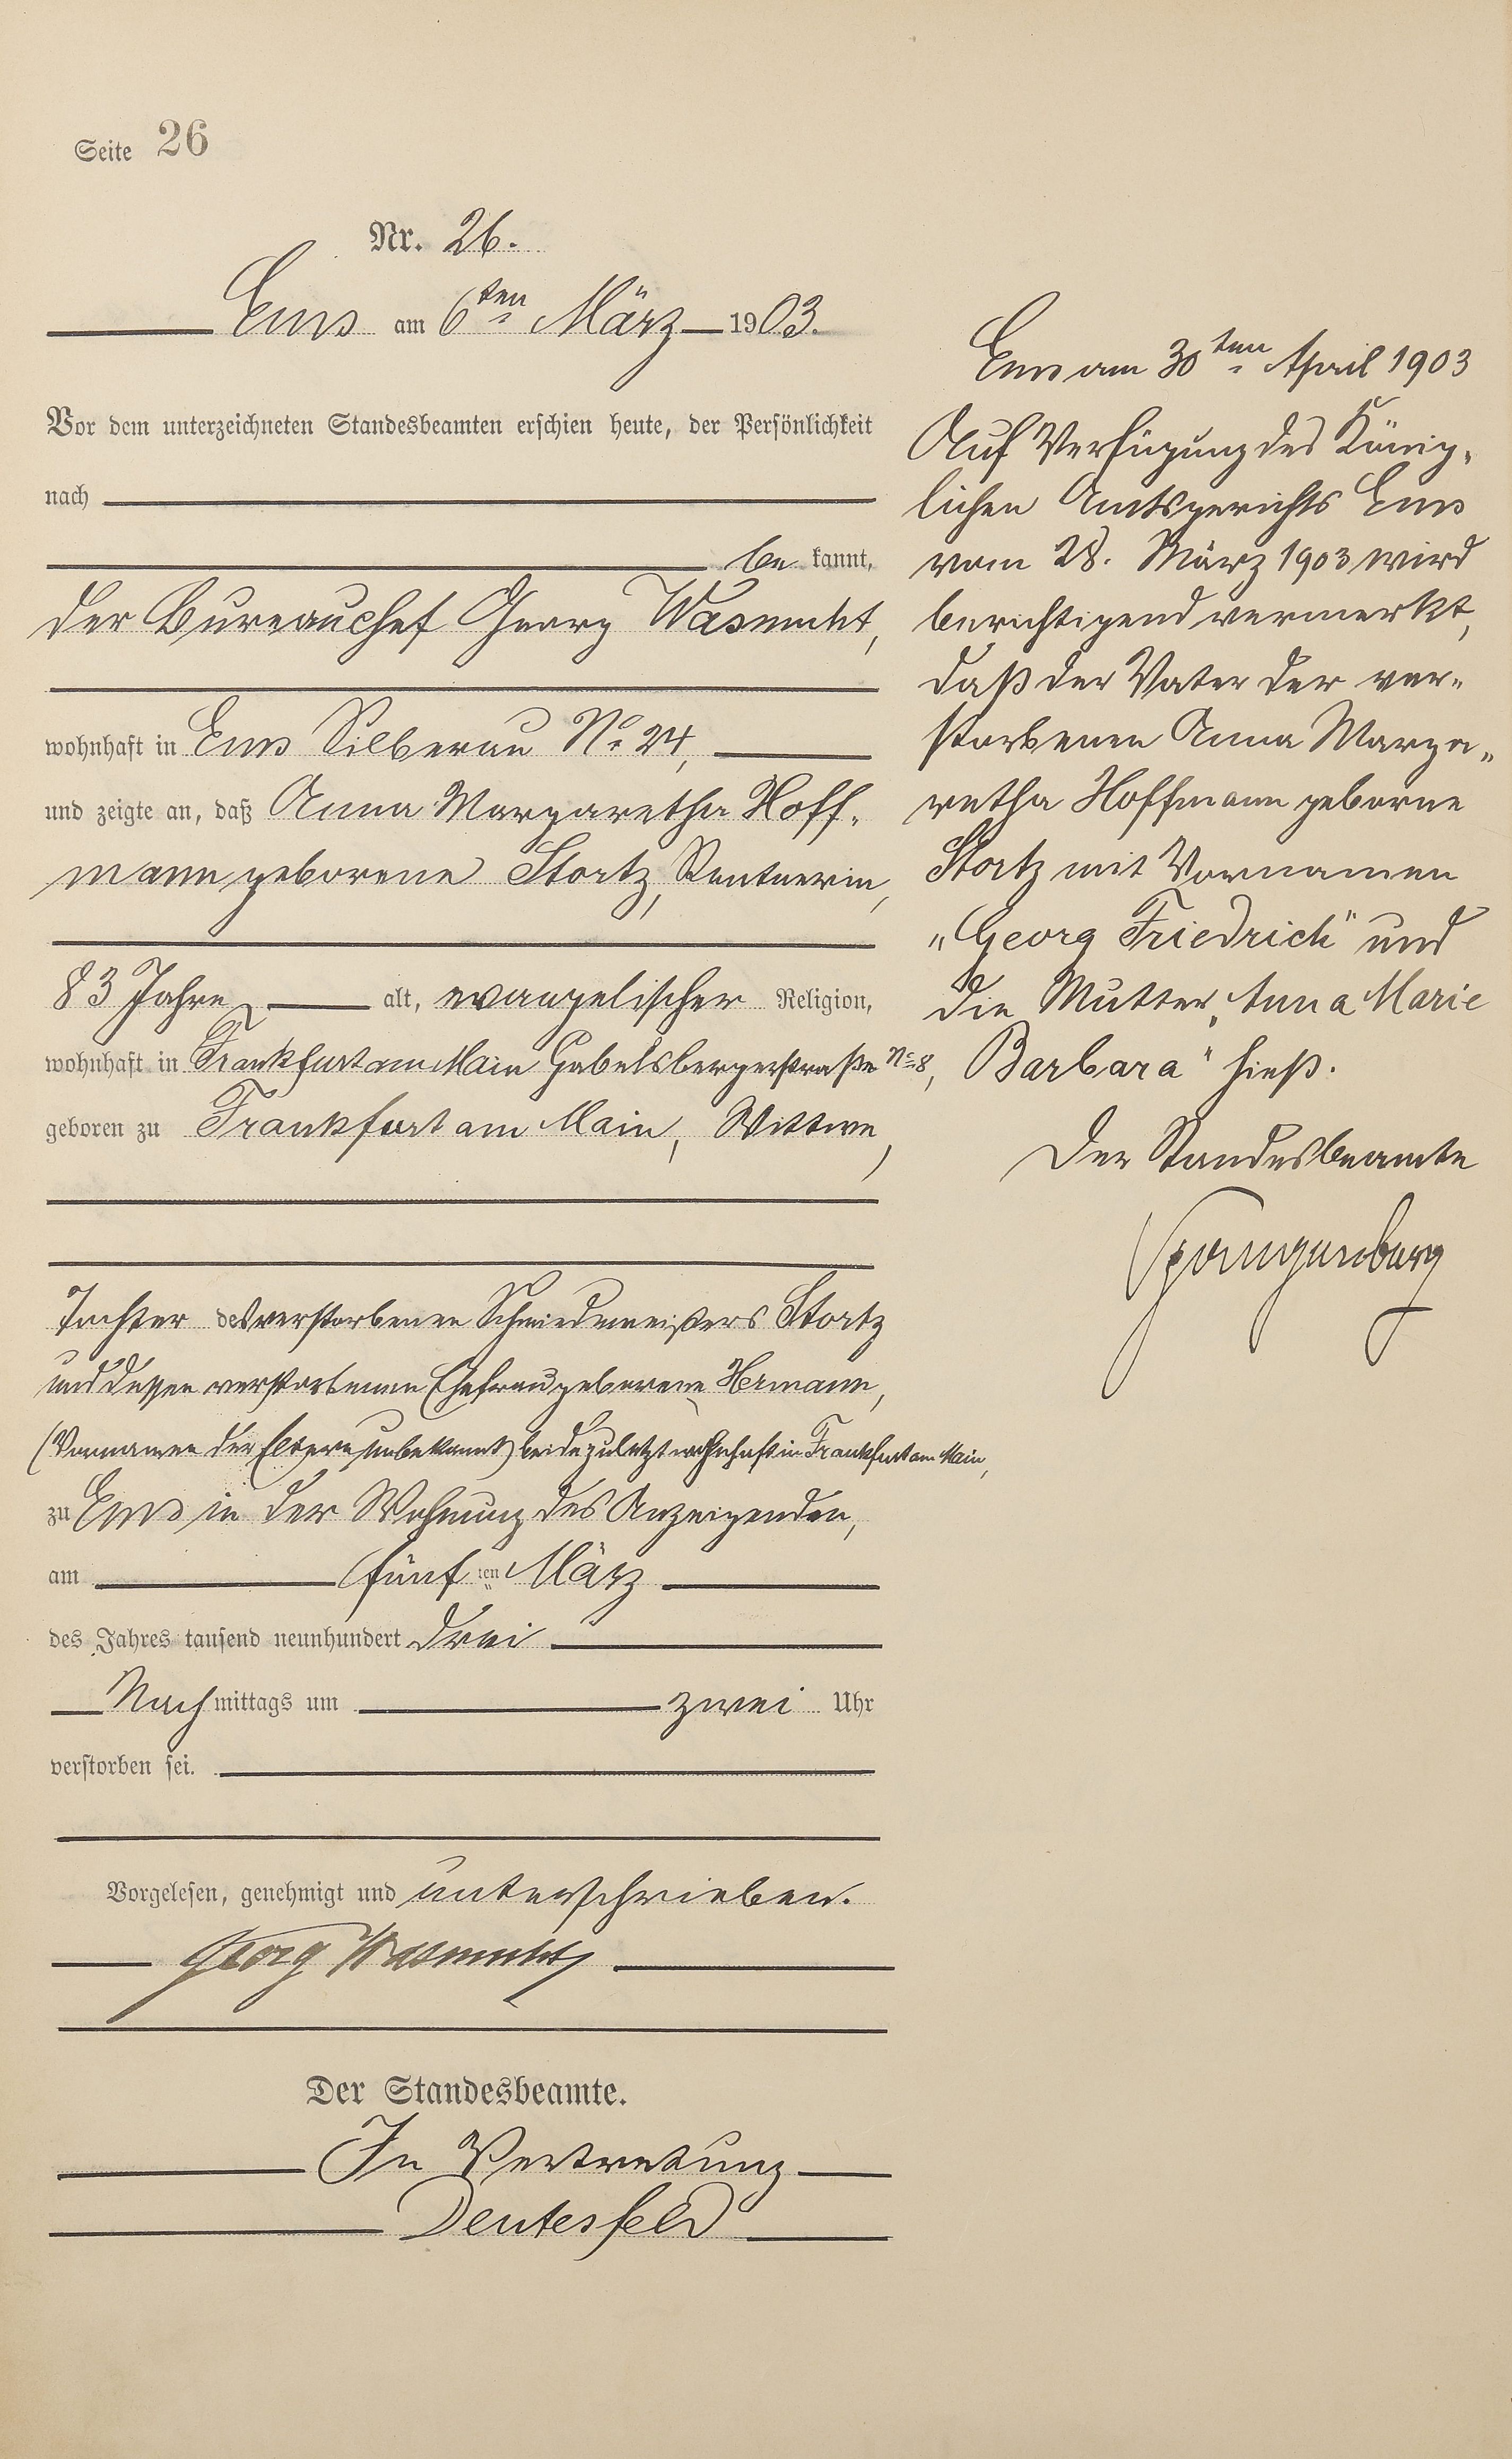 Seite 26
Nr. 26.
Ems am 6ten März 1903.
Vor dem unterzeichneten Standesbeamten erschien heute, der Persönlichkeit
nach
be kannt,
der Bureauchef Georg Wasmuht,
wohnhaft in Ems Silberau No 24,
und zeigte an, daß Anna Margaretha Hoff-
mann geborene Stortz, Rentnerin,
83 Jahre alt, evangelischer Religion,
wohnhaft in Frankfurt am Main Gabelsbergerstraße No 8,
geboren zu Frankfurt am Main, Wittwe,
Tochter des verstorbenen Schmiedemeisters Stortz
und dessen verstorbenen Ehefrau geborene Hermann,
(Vornamen der Eltern unbekannt) beide zuletzt wohnhaft in Frankfurt am Main,
zu Ems in der Wohnung des Anzeigenden,
am fünften März
des Jahres tausend neunhundert drei
Nachmittags um zwei Uhr
verstorben sei.
Vorgelesen, genehmigt und unterschrieben.
Georg Wasmuht
Der Standesbeamte.
In Vertretung
Deutesfeld
Ems am 30ten April 1903
Auf Verfügung des König-
lichen Amtsgerichts Ems
vom 28. März 1903 wird
berichtigend vermerkt,
daß der Vater der ver-
storbenen Anna Marga-
retha Hoffmann geborne
Stortz mit Vornamen
„Georg Friedrich" und
die Mutter „Anna Marie
Barbara" hieß.
Der Standesbeamte
Spangenberg